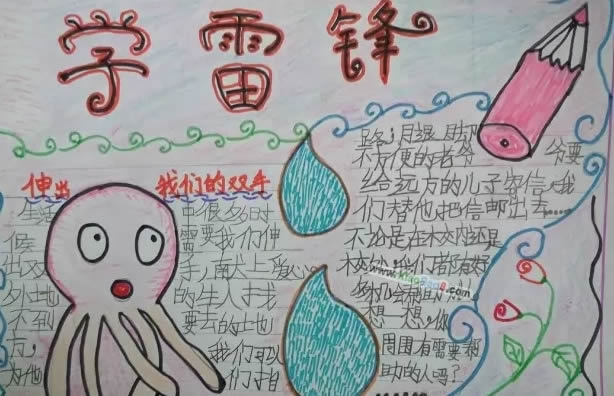 学雷锋
伸出 我们的双手
生活 中很多时
候 需要我们伸
出双 手,献上爱心。
外地 的生人找
不到 要去的地
方, 我们可以
为他 们指
路;目
不方便的老爷 爷要
给远方的儿子寄信,我
们替他把信邮出去……
不论是在校内还是
校外,我们都有好
多机会
想一想,你
周围有需要帮
助的人吗?